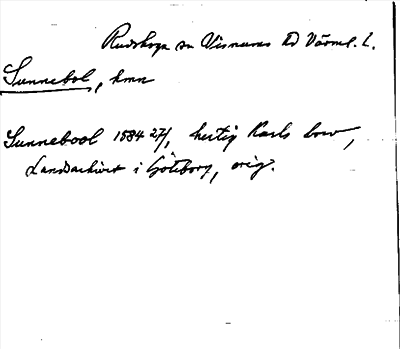 Rudskoga sn Visnums hd Värml. l.
Sunnebol, hmn
Sunnebool 1584 27/1, hertig Karls brev,
Landsarkivet i Göteborg, orig.